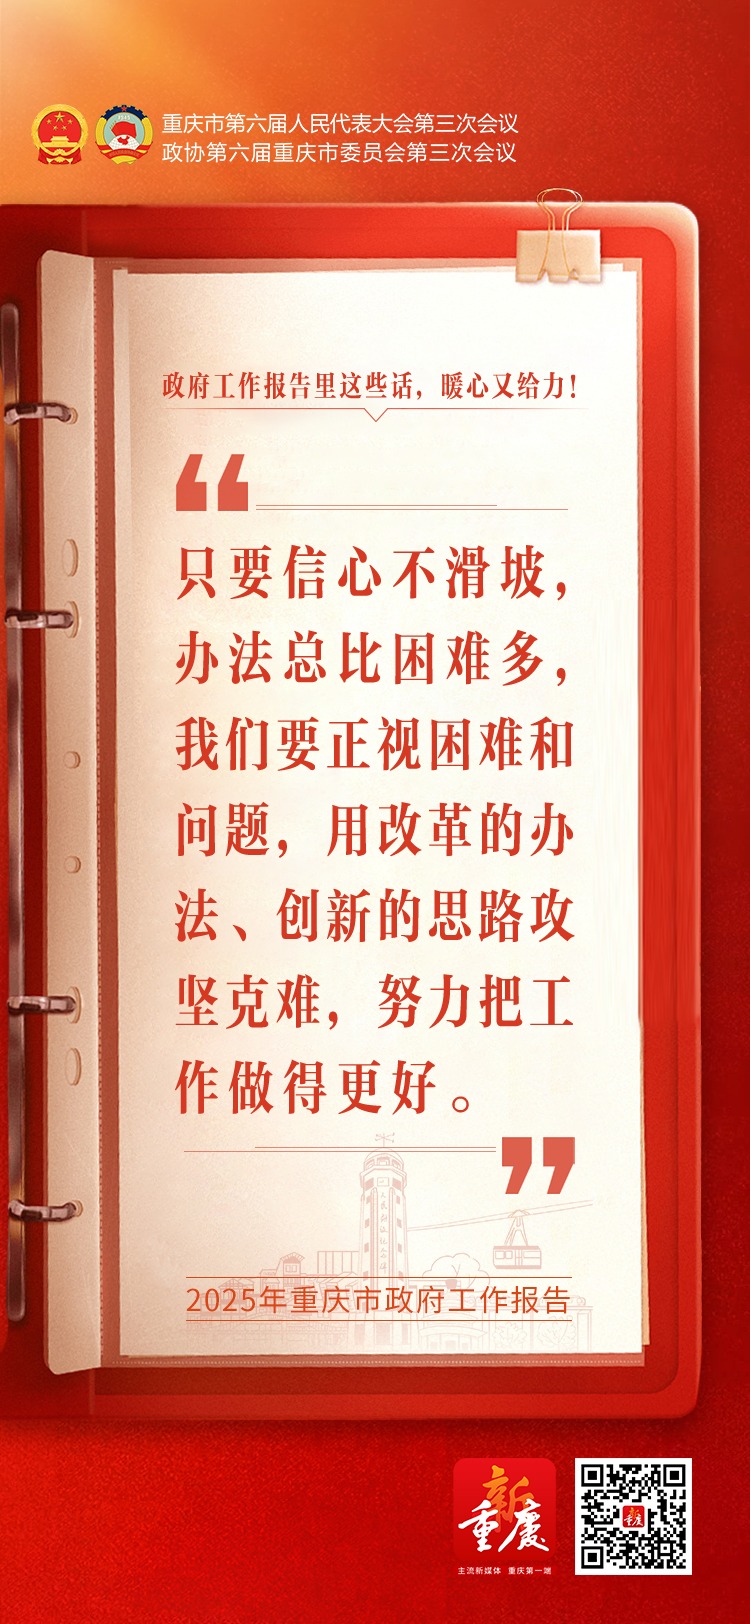 重庆市第六届人民代表大会第三次会议
政协第六届重庆市委员会第三次会议
政府工作报告里这些话，暖心又给力！
“
只要信心不滑坡，
办法总比困难多，
我们要正视困难和
问题，用改革的办
法、创新的思路攻
坚克难，努力把工
作做得更好。
”
人民解放纪念碑
2025年重庆市政府工作报告
新
重庆
主流新媒体 重庆第一端
新
重庆